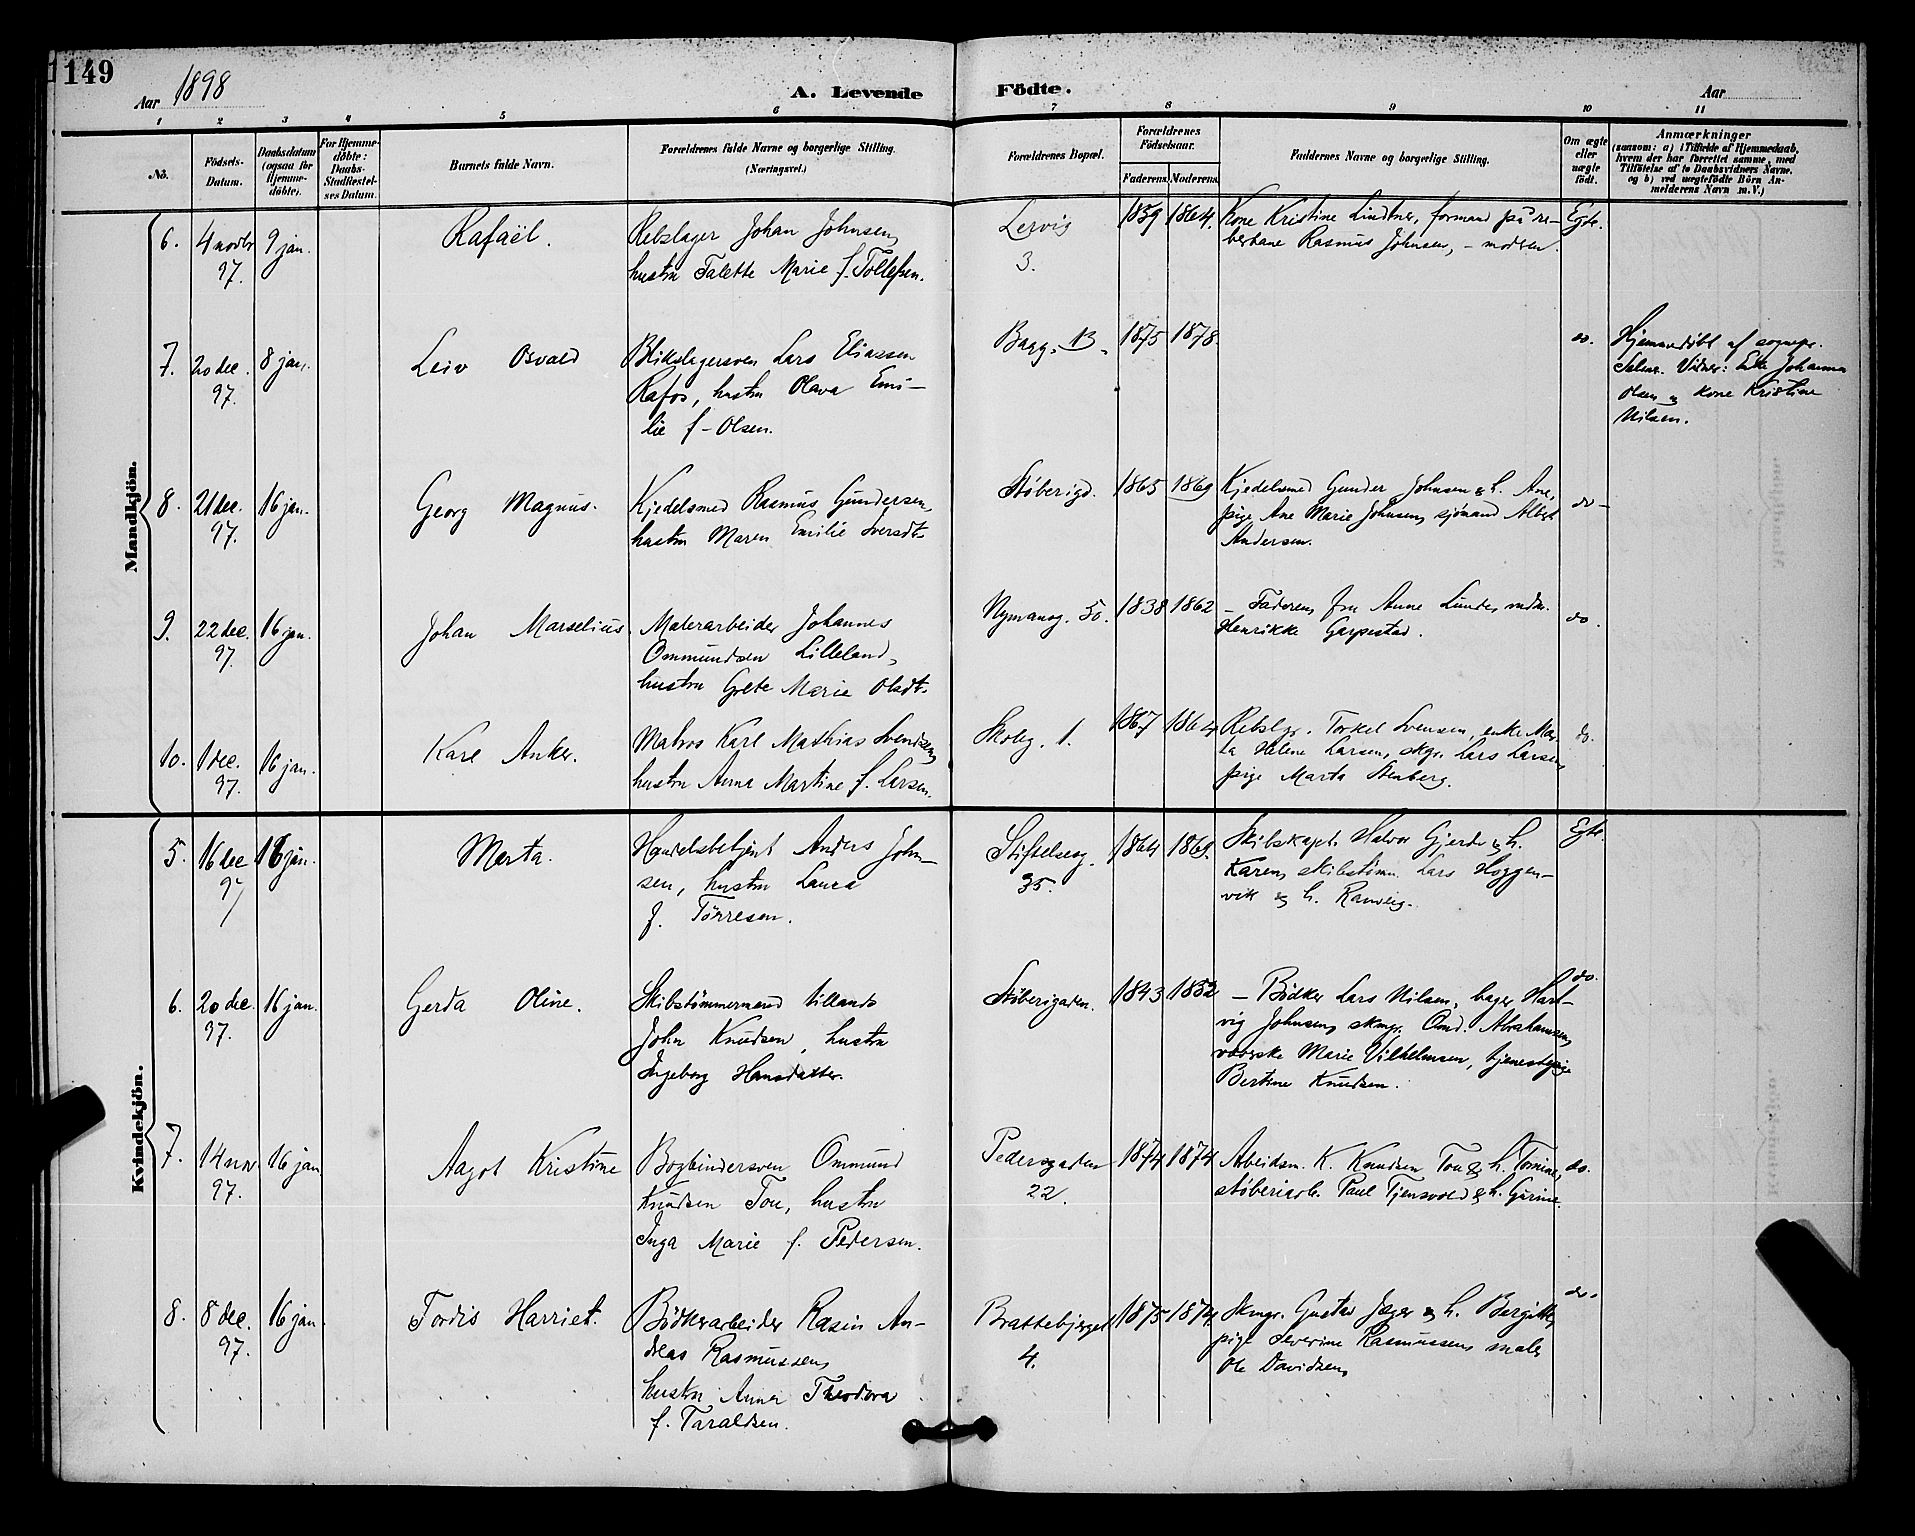 149
Aar 1898
A. Levende
Födte.
Aar
1 2 3 4 5 6 7 8 9 10 11
No.
Födsels-
Datum.
Daabsdatum
(ogsaa for
Hjemme-
döbte).
For Hjemme-
döbte:
Daabs-
Stadfæstel-
ses Datum.
Barnets fulde Navn.
Forældrenes fulde Navne og borgerlige Stilling.
(Næringsvei.)
Forældrenes Bopæl.
Forældrenes
Födselsaar.
Faderens. Moderens.
Faddernes Navne og borgerlige Stilling.
Om ægte
eller
uægte
født.
Anmærkninger
(saasom: a) i Tilfælde af Hjemmedaab,
hvem der har forrettet samme, med
Tilföielse af to Daabsvidners Navne.
og b) ved uægtefödte Börn An-
melderens Navn m. V.)
Mandkjön.
6. 4 novbr 97. 9 jan. Rafaël.
Rebslager Johan Johnsen,
hustru Talette Marie f. Tollefsen.
Lervig
3.
1859 1864.
Kone Kristine Lindtner, formand på re-
berbane Rasmus Johnsen, - modren.
Egte.
7. 20 dec. 97. 8 jan. Leiv Osvald
Blikslagersven Lars Eliassen
Rafos, hustru Olava Emi-
lie f - Olsen.
Berg. 13.
1875 1878.
do.
Hjemmedöbt af sognepr.
Vidner: Enke Johanna
Olsen og kone Kristine
Nilsen.
8. 21 dec. 97. 16 jan. Georg Magnus.
Kjedelsmed Rasmus Gundersen,
hustru Maren Emilie Sversdt.
Stöberigd.
1865 1869
Kjedelsmed Gunder Johnsen & h. Ane,
pige Ane Marie Johnsen, sjömand Albert
Andersen.
do -
9. 22 dec. 97. 16 jan. Johan Marselius.
Malerarbeider Johannes
Ommundsen Lilleland,
hustru Grete Marie Olsdt.
Nymansg. 50.
1838 1862
- Faderen, fru Anne Lunde,
Henrikke Garpestad.
do.
10. 1 dec. 97. 16 jan. Karl Anker.
Matros Karl Mathias Svendsen,
hustru Anna Martine f. Larsen.
Skoleg. 1.
1867 1864
Rebslgr. Torkel Svensen, enke Mar-
ta Helene Larsen, skgr. Lars Larsen,
pige Marta Stenberg.
do.
Kvindekjön.
5. 16 dec 97 16 jan. Marta.
Handelsbetjent Anders John-
sen, hustru Laura
f. Törresen.
Stiftelsesg.
35.
1864 1869.
Skibskapt. Halvor Gjerde & h.
Karen, skibstömm. Lars Hoggen-
vik & h. Ranveig.
Egte.
6. 20 dec. 97. 16 jan. Gerda Oline.
Skibstömmermand Villands
John Knudsen, hustru
Ingeborg Hansdatter.
Stöberigaden.
1843 1852
- Bödker Lars Nilsen, bager Hart-
vig Johnsen, skmgr. Omd. Abrahamsen,
væverske Marie Vilhelmsen, tjenestepige
Bertine Knudsen.
do.
7. 14 nov 97. 16 jan Aagot Kristine
Bogbindersven Ommund
Knudsen Tou, hustru
Inga Marie f. Pedersen.
Pedersgaden
22.
1874 1874
Arbeidsm. K. Knudsen Tou & h. Tomine,
stöberiarb. Paul Tjensvold & h. Gurine.
do.
8. 8 dec. 97. 16 jan. Tordis Harriet.
Bödkerarbeider Rasin An-
dreas Rasmussen,
hustru Anna Theodora
f. Taraldsen.
Brattebjerget
4.
1875 1874
Skmgr. Gustav Jæger & h. Bergitte,
pige Severine Rasmussen, maler
Ole Davidsen,
do.